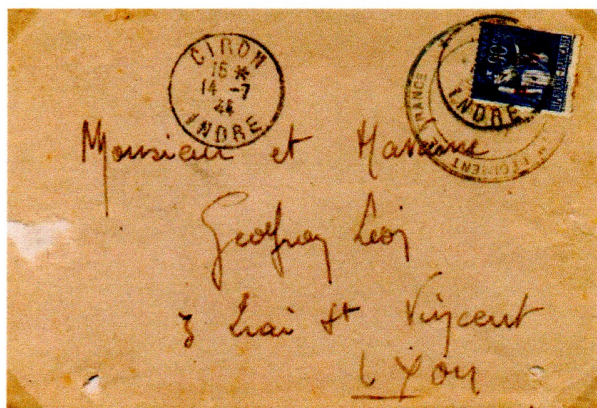 CIRON
15 *
14 -7
44
INDRE
INDRE
FRANCE
REGIMENT
Monsieur et Madame
Geoffray Léon
3 Quai St Vincent
Lyon